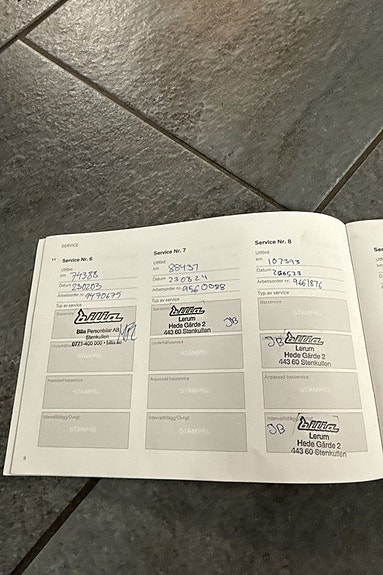 SERVICE
Service Nr. 6
Utförd
km 74388
Datum 230203
Arbetsorder nr. 9470675
Typ av service
Basservice
bilia
Bilia Personbilar AB
Stenkullen
0771-400 000 • bilia.se
Underhållsservice
Anpassad basservice
STÄMPEL
Intervalltillägg/Övrigt
STÄMPEL
Service Nr. 7
Utförd
km 88437
Datum 230324
Arbetsorder nr. 9560088
Typ av service
Basservice
bilia
Lerum
Hede Gärde 2
443 60 Stenkullen
JB
Underhållsservice
STÄMPEL
Anpassad basservice
STÄMPEL
Intervalltillägg/Övrigt
STÄMPEL
Service Nr. 8
Utförd
km 107393
Datum
Arbetsorder nr. 9661876
Typ av service
Basservice
STÄMPEL
JB
bilia
Lerum
Hede Gärde 2
443 60 Stenkullen
Anpassad basservice
STÄMPEL
Intervalltillägg/Övrigt
JB
bilia
Lerum
Hede Gärde 2
443 60 Stenkullen